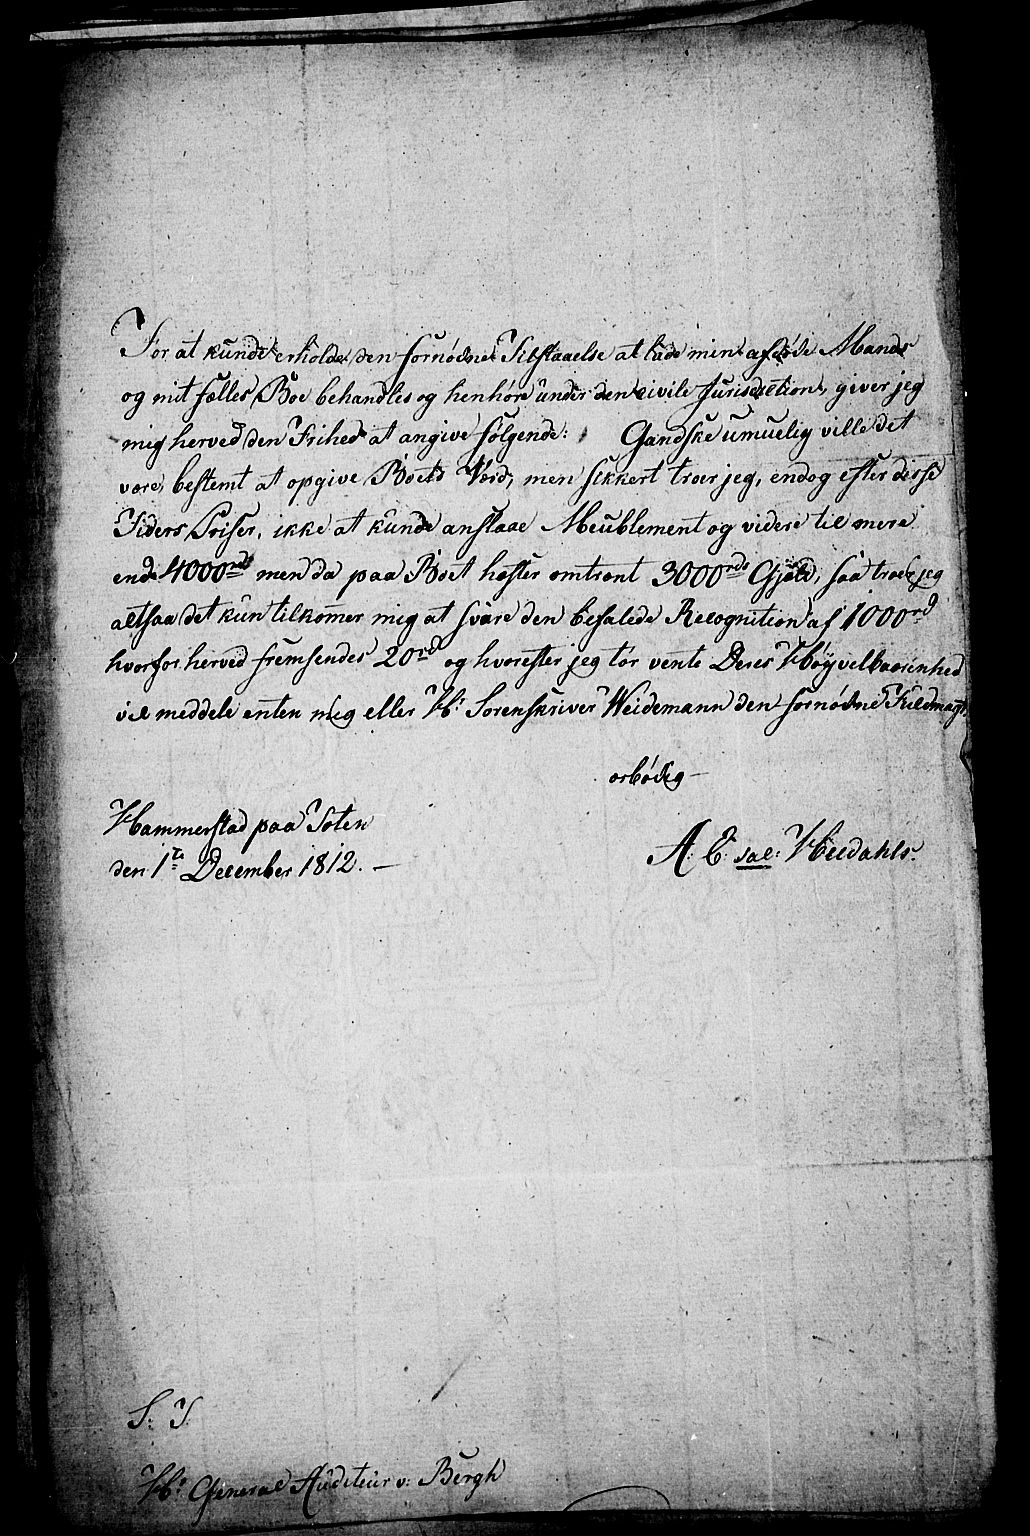 For at kunde erholde den fornødne Tilstaaelse at lade min afdøde Mands
og mit fælles Boe behandles og henhøre under den civile Jurisdiction, giver jeg
mig herved den Frihed at angive følgende: Gandske umuelig ville det
være, bestemt at opgive Boets Værd, men sikkert troer jeg, endog efter disse
Tiders Priser, ikke at kunde anslaae Meublement og videre til mere
end 4000rdr men da paa Boet hæfter omtrent 3000rdr Gjæld, saa troer jeg
altsaa det kun tilkommer mig at svare den befalede Recognition af 1000rd
hvorfor herved fremsendes 20rd og hvorefter jeg tør vente Deres Høyvelbaarenhed
vil meddele enten mig eller Hr Sorenskriver Weidemann den fornødne Fuldmagt,
ærbødig –
Hammerstad paa Toten
den 1te December 1812. –
A: E: sal: Heidahls.
S: T:
Hr General Auditeur v: Bergh